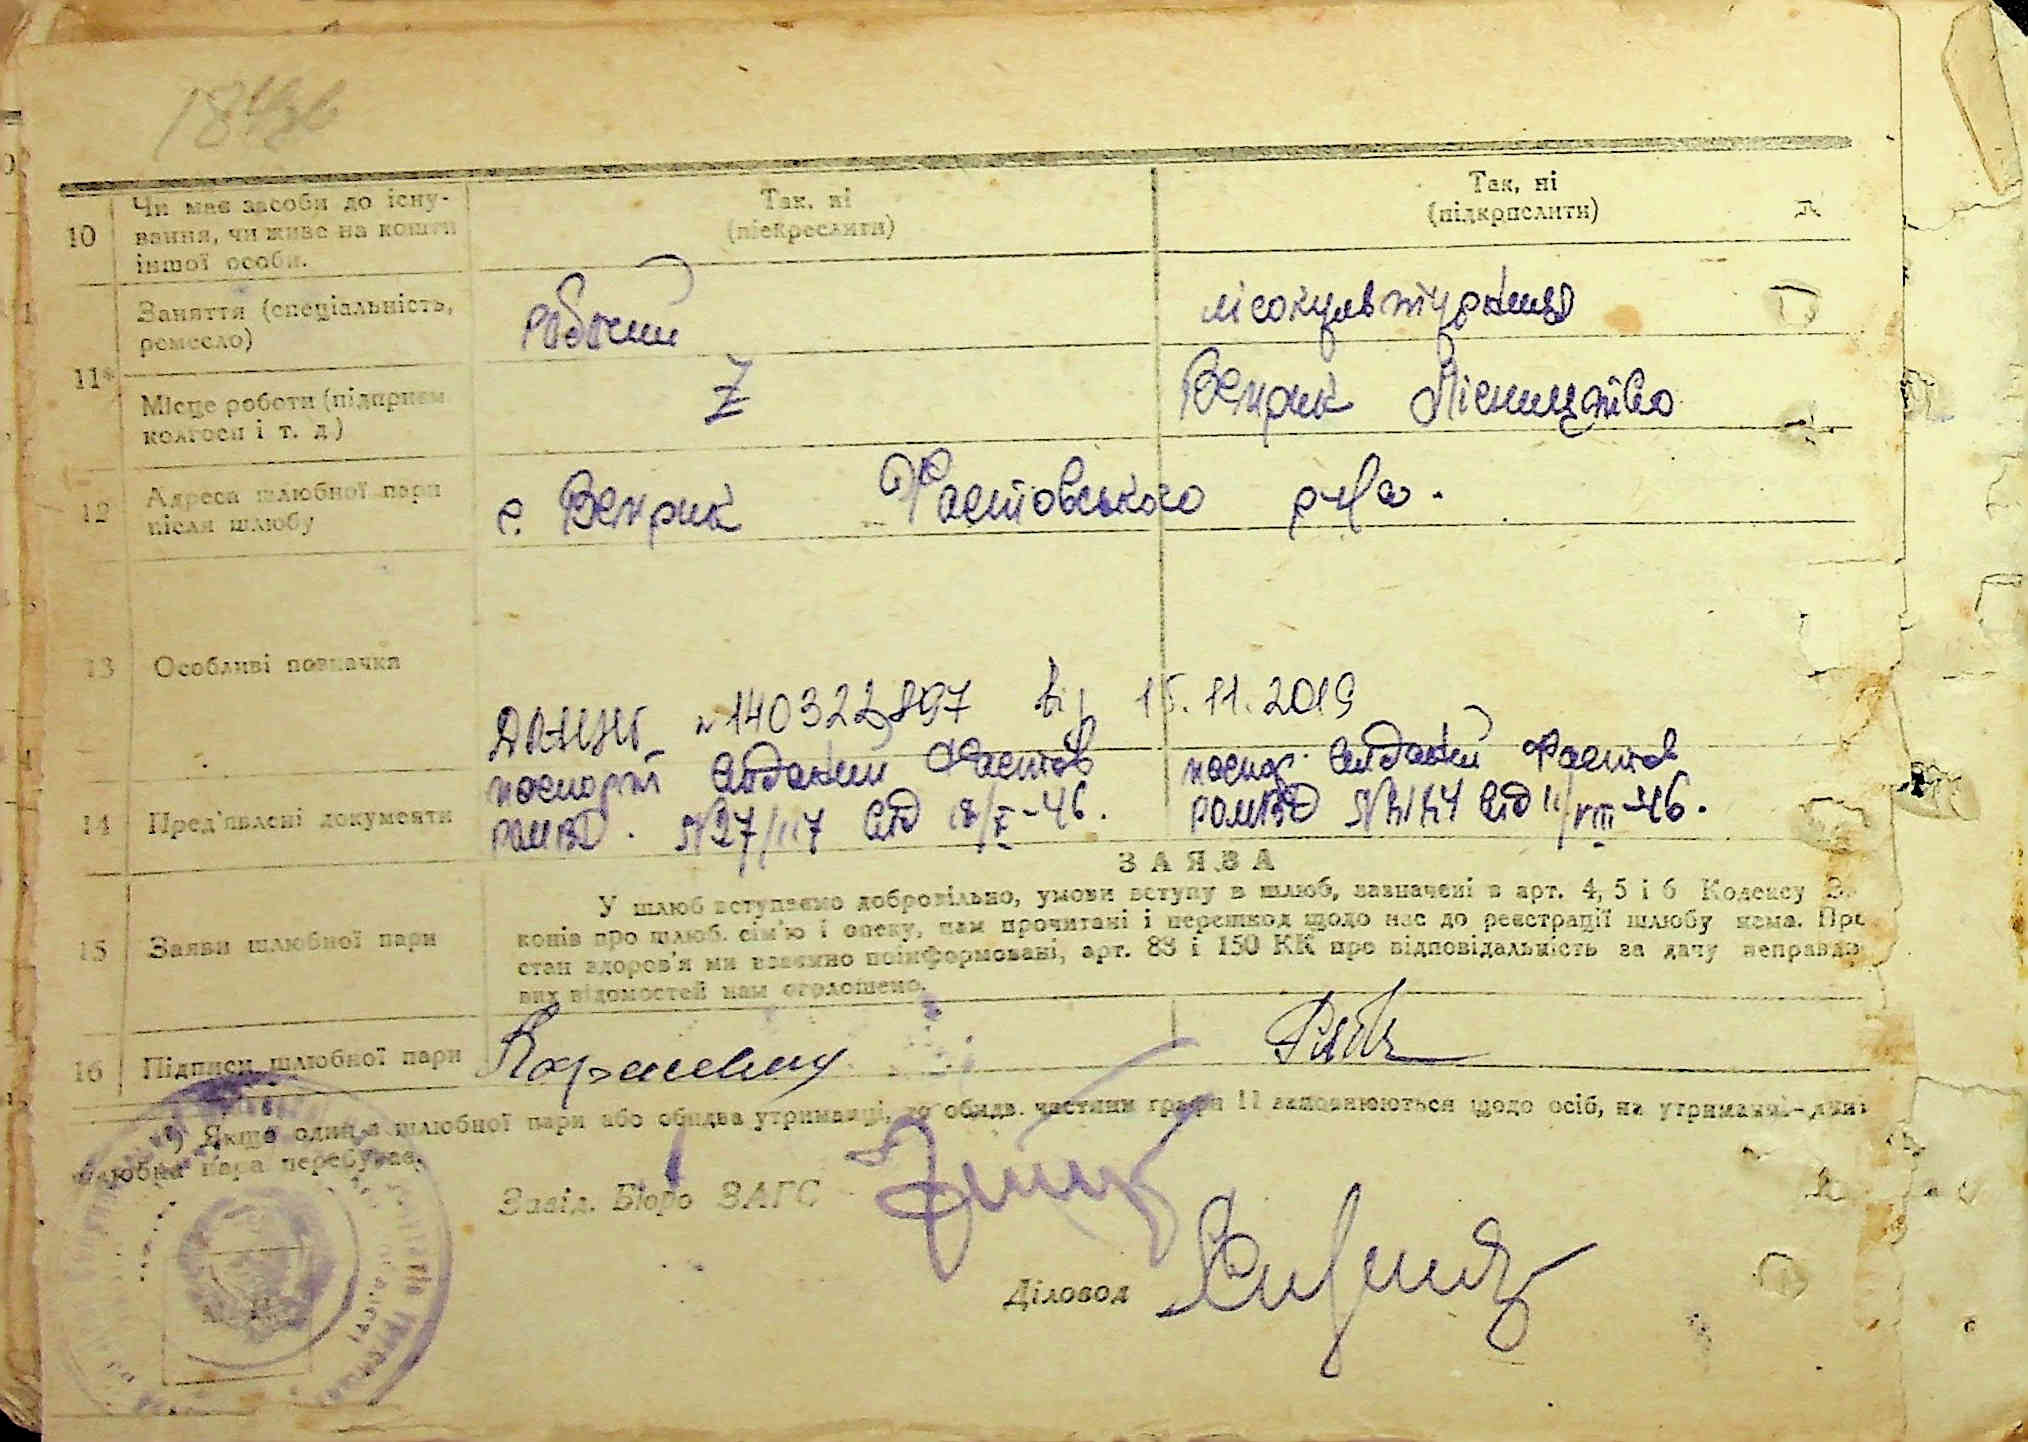 10
Чи має засоби до існу-
вання, чи живе на кошти
іншої особи.
Так, ні
(підкреслити)
Так, ні
(підкреслити)
11*
Заняття (спеціальність,
ремесло)
робочий
лісокультурниця
Місце роботи (підприєм.
колгосп і т. д.)
Z
Веприк Лісництво
12
Адреса шлюбної пари
після шлюбу
с. Веприк Фастовського р-на.
13
Особливі позначки
№ 140322897 від 15.11.2019
14
Пред'явлені документи
паспорт виданий Фастов
РОМВД. №27/117 від 18/X-46.
паспор. виданий Фастов
РОМВД від 11/VIII-46.
15
Заяви шлюбної пари
ЗАЯВА
У шлюб вступаємо добровільно, умови вступу в шлюб, зазначені в арт. 4, 5 і 6 Кодексу За-
конів про шлюб, сім'ю і опеку, нам прочитані і перешкод щодо нас до реєстрації шлюбу нема. Про
стан здоров'я ми взаємно поінформовані, арт. 88 і 150 КК про відповідальність за дачу неправди-
вих відомостей нам оголошено.
16
Підписи шлюбної пари
*) Якщо один з шлюбної пари або обидва утриманці, то обидв. частини графи 11 заповнюються щодо осіб, на утриманні яких
шлюбна пара перебуває.
Завід. Бюро ЗАГС
Діловод